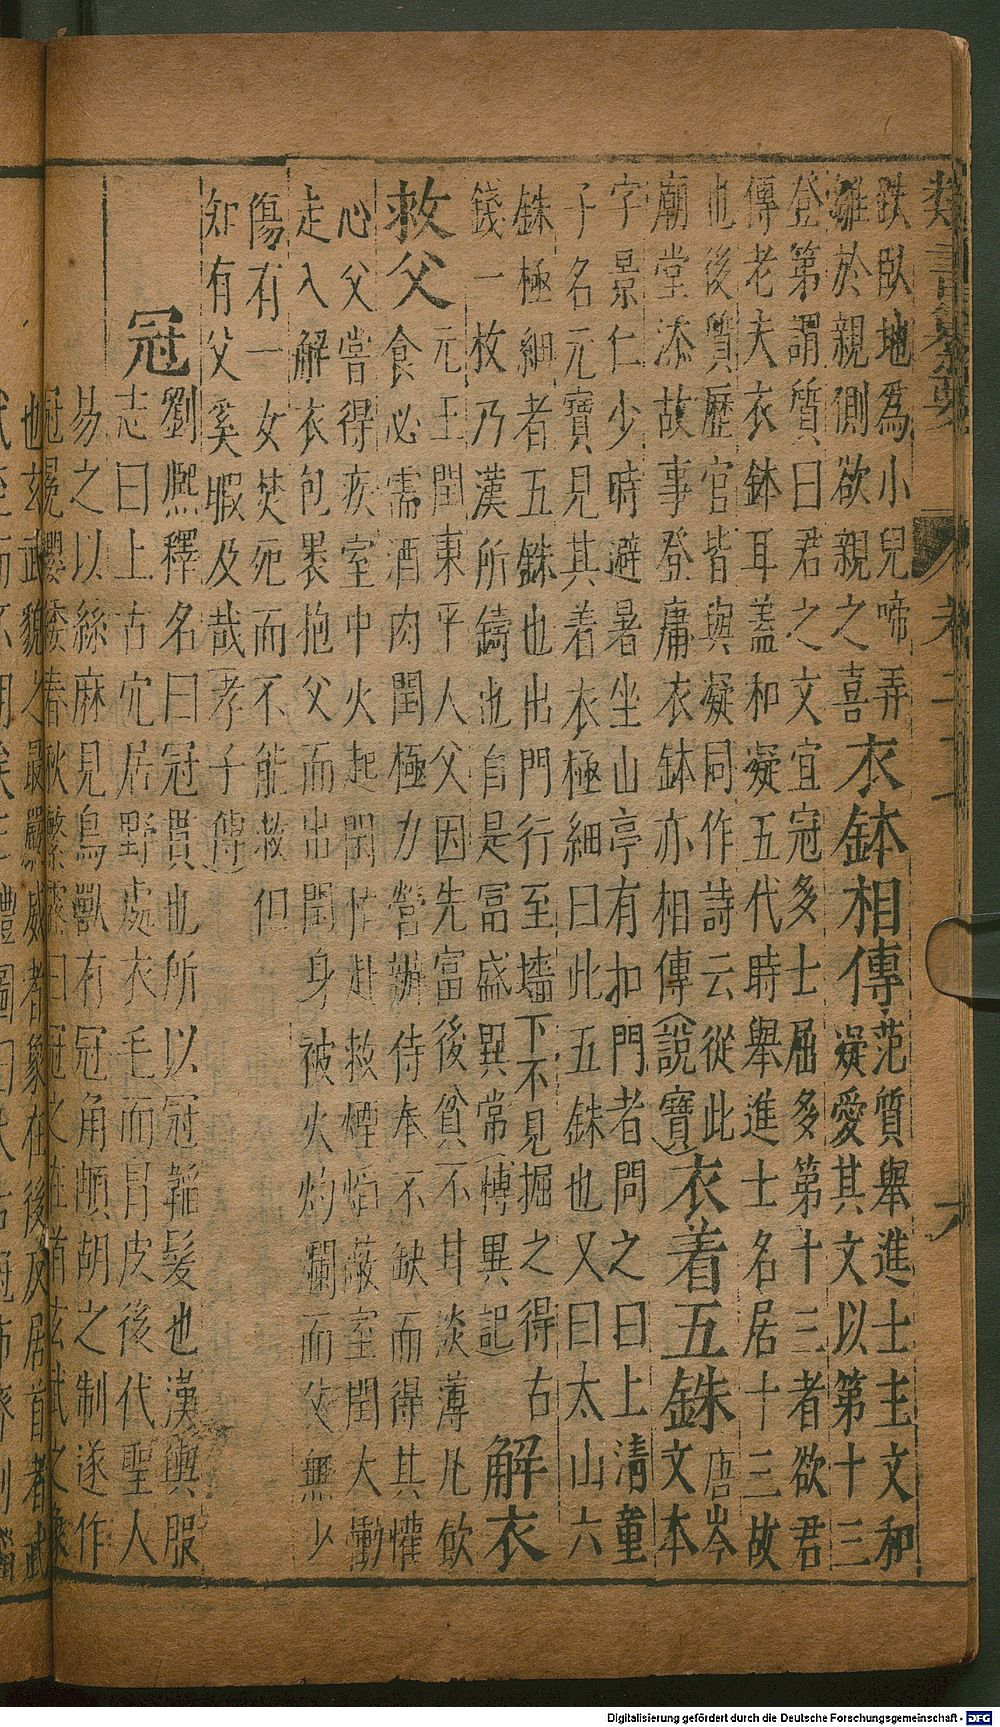 類書纂要 卷二十二 六
跌臥地為小兒啼弄
雛於親側欲親之喜
衣鉢相傳
范質舉進士主文和
凝愛其文以第十三
登第謂質曰君之文宜冠多士屈多第十三者欲君
傳老夫衣鉢耳蓋和凝五代時舉進士名居十三故
也後質歷官皆與凝同作詩云從此
廟堂添故事登庸衣鉢亦相傳(說寶)
衣着五銖
唐岑
文本
字景仁少時避暑坐山亭有扣門者問之曰上清童
子名元寶見其着衣極細曰此五銖也又曰太山六
銖極細者五銖也出門行至墻下不見掘之得右
錢一枚乃漢所鑄也自是富盛異常(博異記
解衣
救父
元王閏東平人父因先富後貧不甘淡薄凡飲
食必需酒肉閏極力營辦侍奉不缺而得其懽
心父嘗得疾室中火起閏惟赴救煙焰蔽室閏大慟
走入解衣包裹抱父而出閏身被火灼爛而父無少
傷有一女焚死而不能救但
知有父奚暇及哉(孝子傳)
冠
劉熈釋名曰冠貫也所以冠韜髮也漢輿服
志曰上古穴居野處衣毛而冒皮後代聖人
易之以絲麻見鳥獸有冠角頔胡之制遂作
冠冕纓緌春秋繁露曰冠之在首玄武之象
也玄武貌之最嚴威者象在後反居首者武
Digitalisierung gefördert durch die Deutsche Forschungsgemeinschaft - DFG